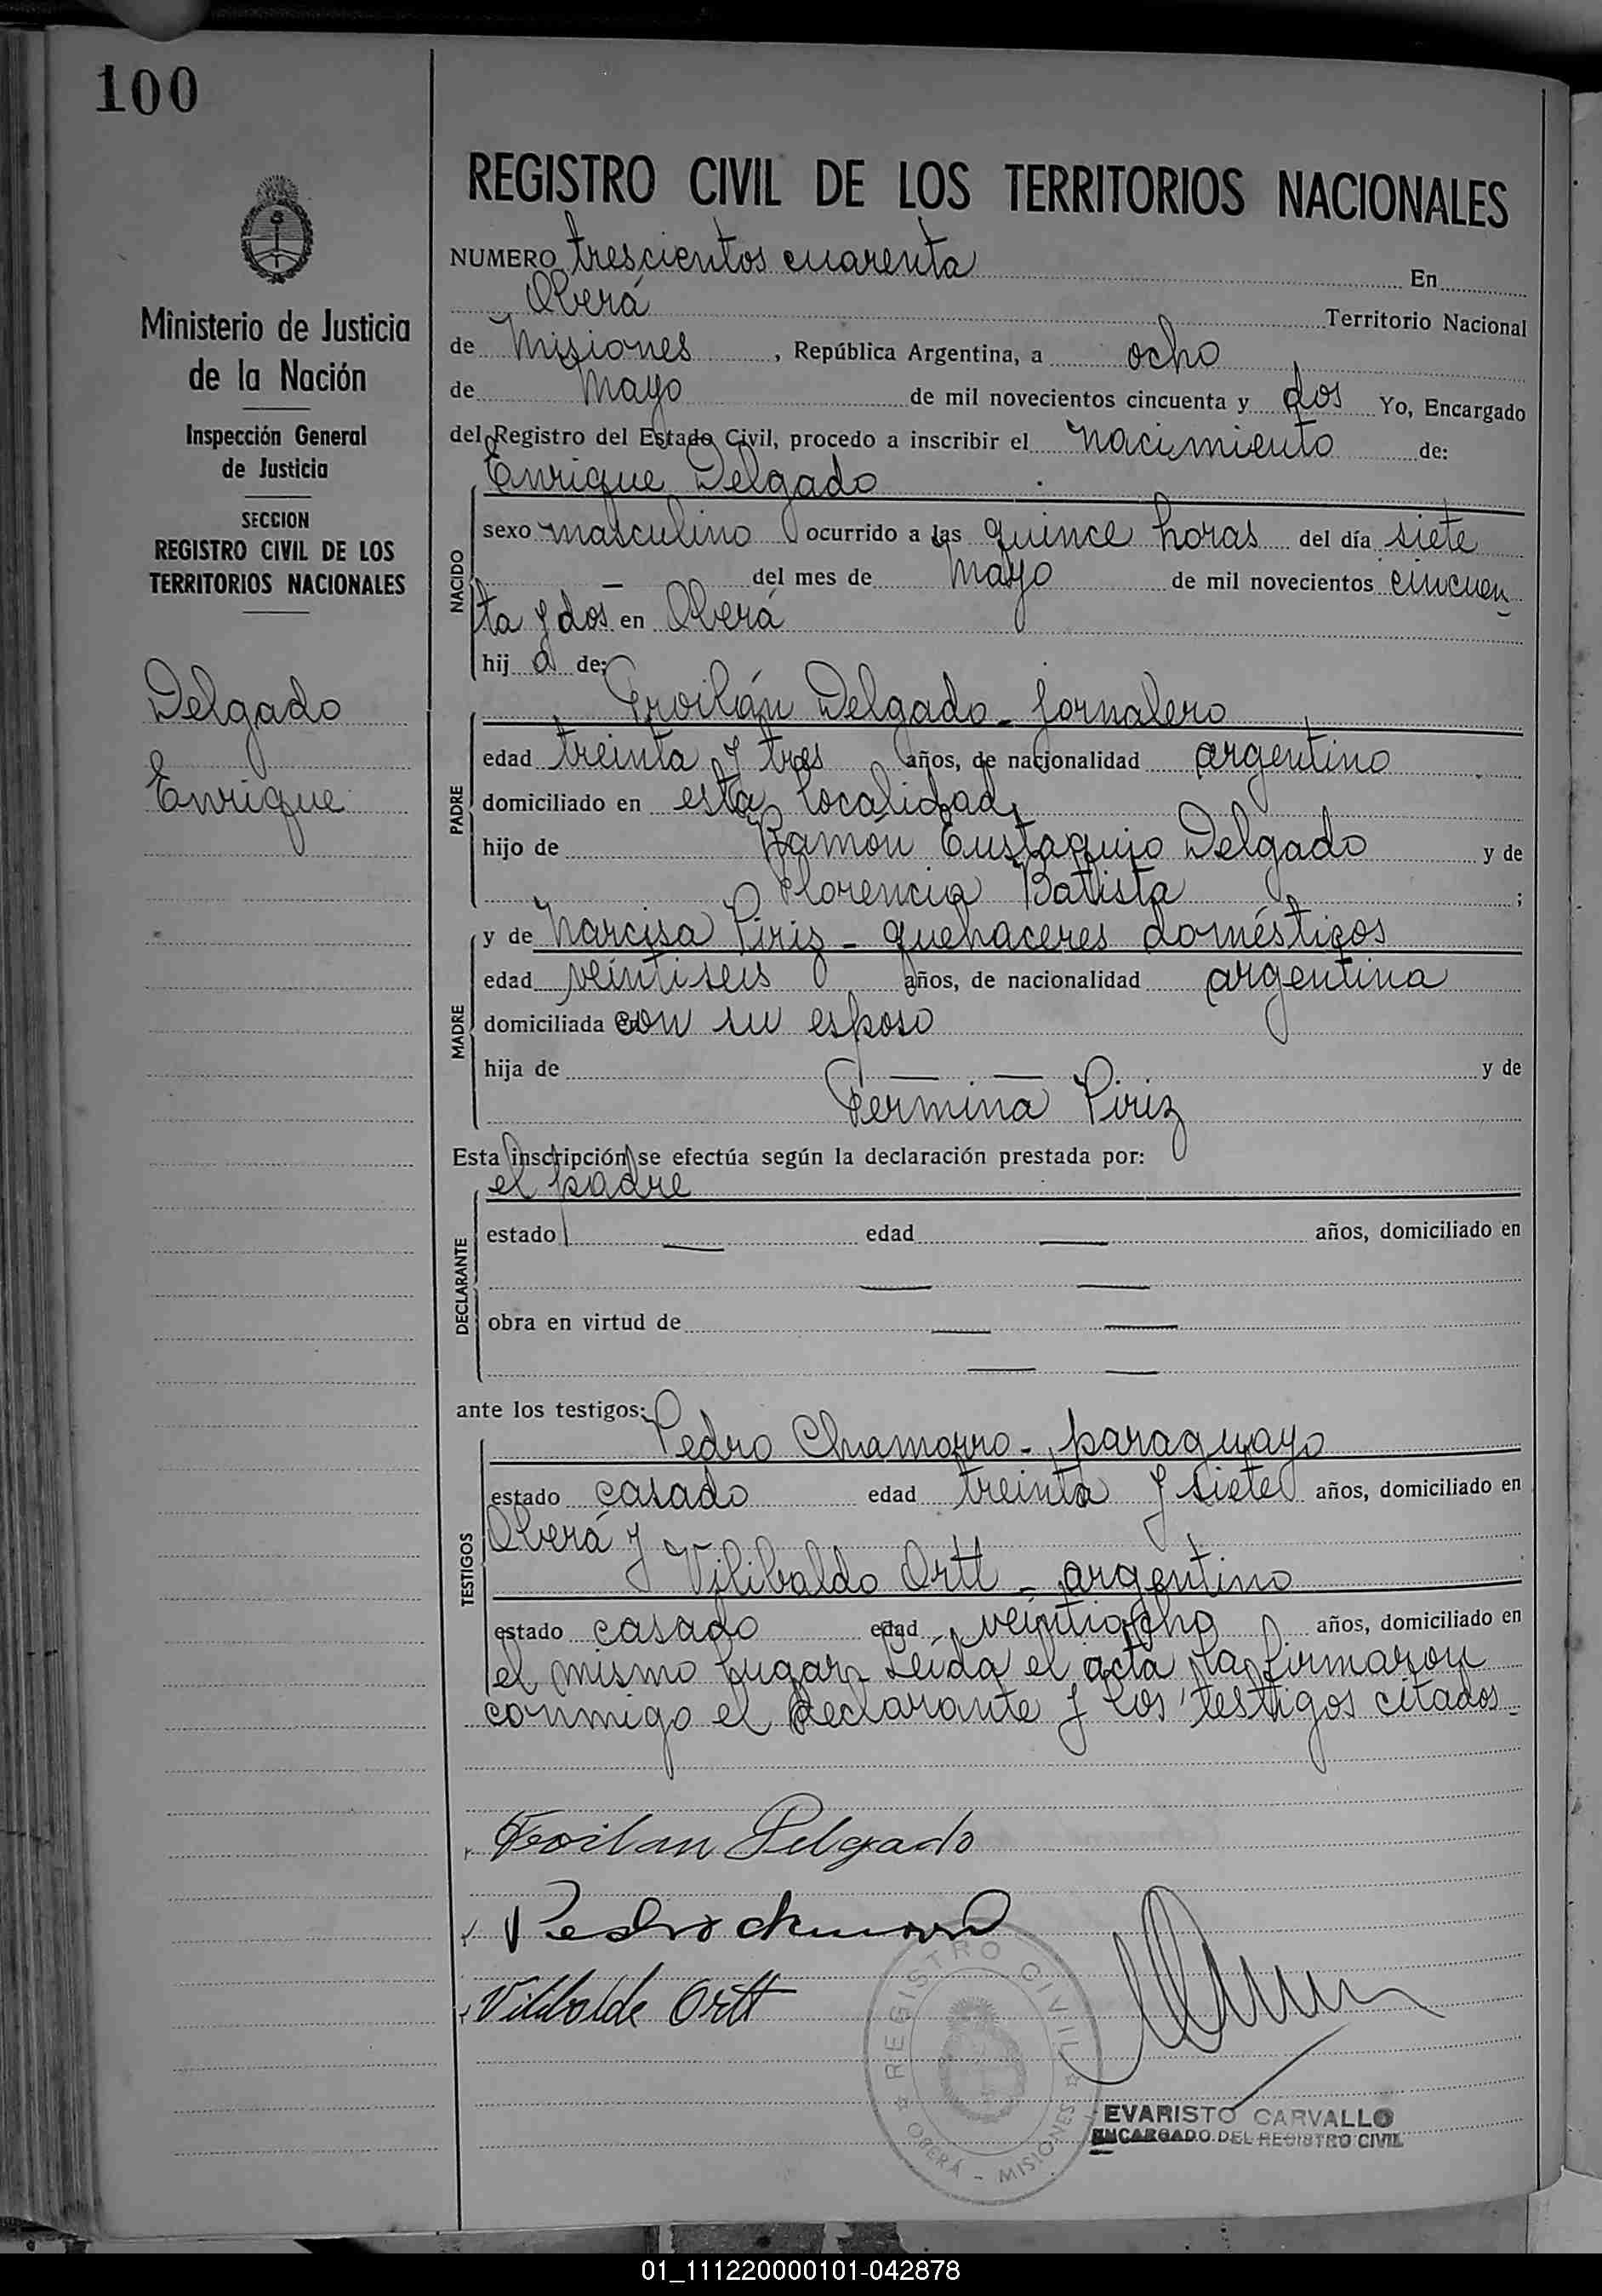 100
Ministerio de Justicia
de la Nación
Inspección General
de Justicia
SECCION
REGISTRO CIVIL DE LOS
TERRITORIOS NACIONALES
Delgado
Enrique
REGISTRO CIVIL DE LOS TERRITORIOS NACIONALES
NUMERO trescientos cuarenta En
Oberá Territorio Nacional
de Misiones, República Argentina, a ocho
de Mayo de mil novecientos cincuenta y dos Yo, Encargado
del Registro del Estado Civil, procedo a inscribir el nacimiento de:
NACIDO
Enrique Delgado
sexo masculino ocurrido a las quince horas del día siete
— del mes de Mayo de mil novecientos cincuen-
ta y dos en Oberá
hij o de:
PADRE
Froilán Delgado - jornalero
edad treinta y tres años, de nacionalidad argentino
domiciliado en esta localidad,
hijo de Ramón Eustaquio Delgado y de
Florencia Batista ;
MADRE
y de Narcisa Piriz - quehaceres domésticos
edad veintiseis años, de nacionalidad argentina
domiciliada con su esposo
hija de — — y de
Fermina Piriz
Esta inscripción se efectúa según la declaración prestada por:
DECLARANTE
el padre
estado — edad — años, domiciliado en
— —
obra en virtud de — —
— —
ante los testigos:
TESTIGOS
Pedro Chamorro - paraguayo
estado casado edad treinta y siete años, domiciliado en
Oberá y
Vilibaldo Ortt - argentino
estado casado edad veintiocho años, domiciliado en
el mismo lugar - Leída el acta la firmaron
conmigo el declarante y los testigos citados -
Froilan Delgado
Pedro Chamorro
Vilibaldo Ortt
REGISTRO CIVIL
OBERÁ - MISIONES
EVARISTO CARVALLO
ENCARGADO DEL REGISTRO CIVIL
01_111220000101-042878